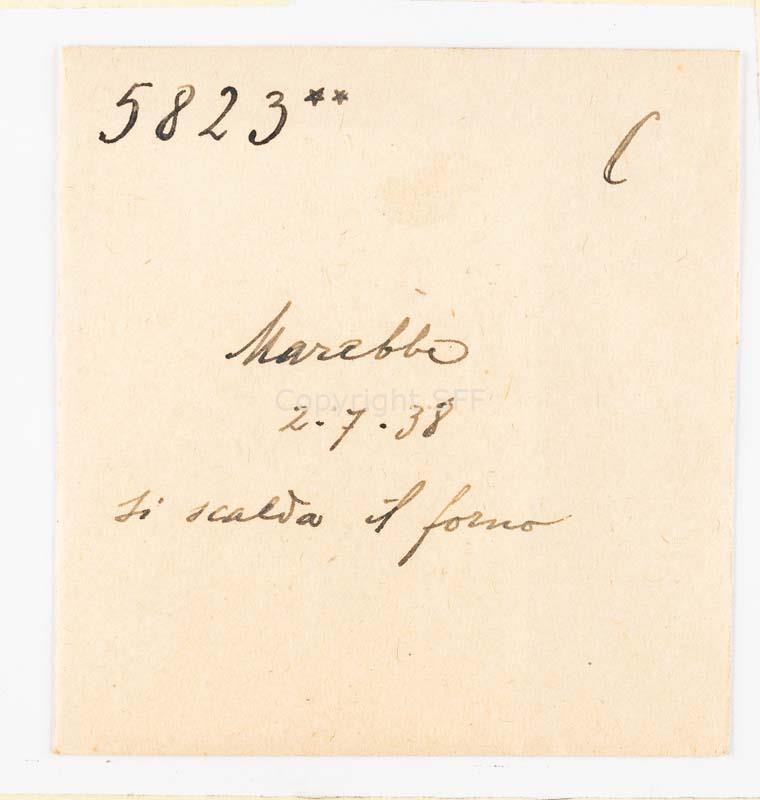 5823**
C
Marebbe
2.7.38
Copyright SFF
si scalda il forno